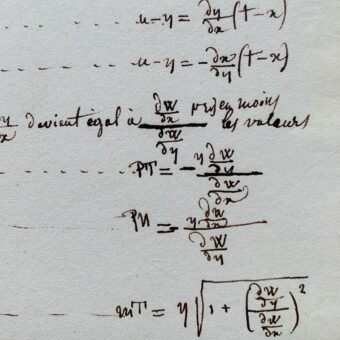 u-y = ∂y/∂x (t-x)
u-y = -∂x/∂y (t-x)
y/x devient égal à (∂W/∂x)/(∂W/∂y) moins les valeurs
PT = -y (∂W/∂y)/(∂W/∂x)
PN = -y (∂W/∂x)/(∂W/∂y)
mT = y √(1 + ((∂W/∂y)/(∂W/∂x))²)